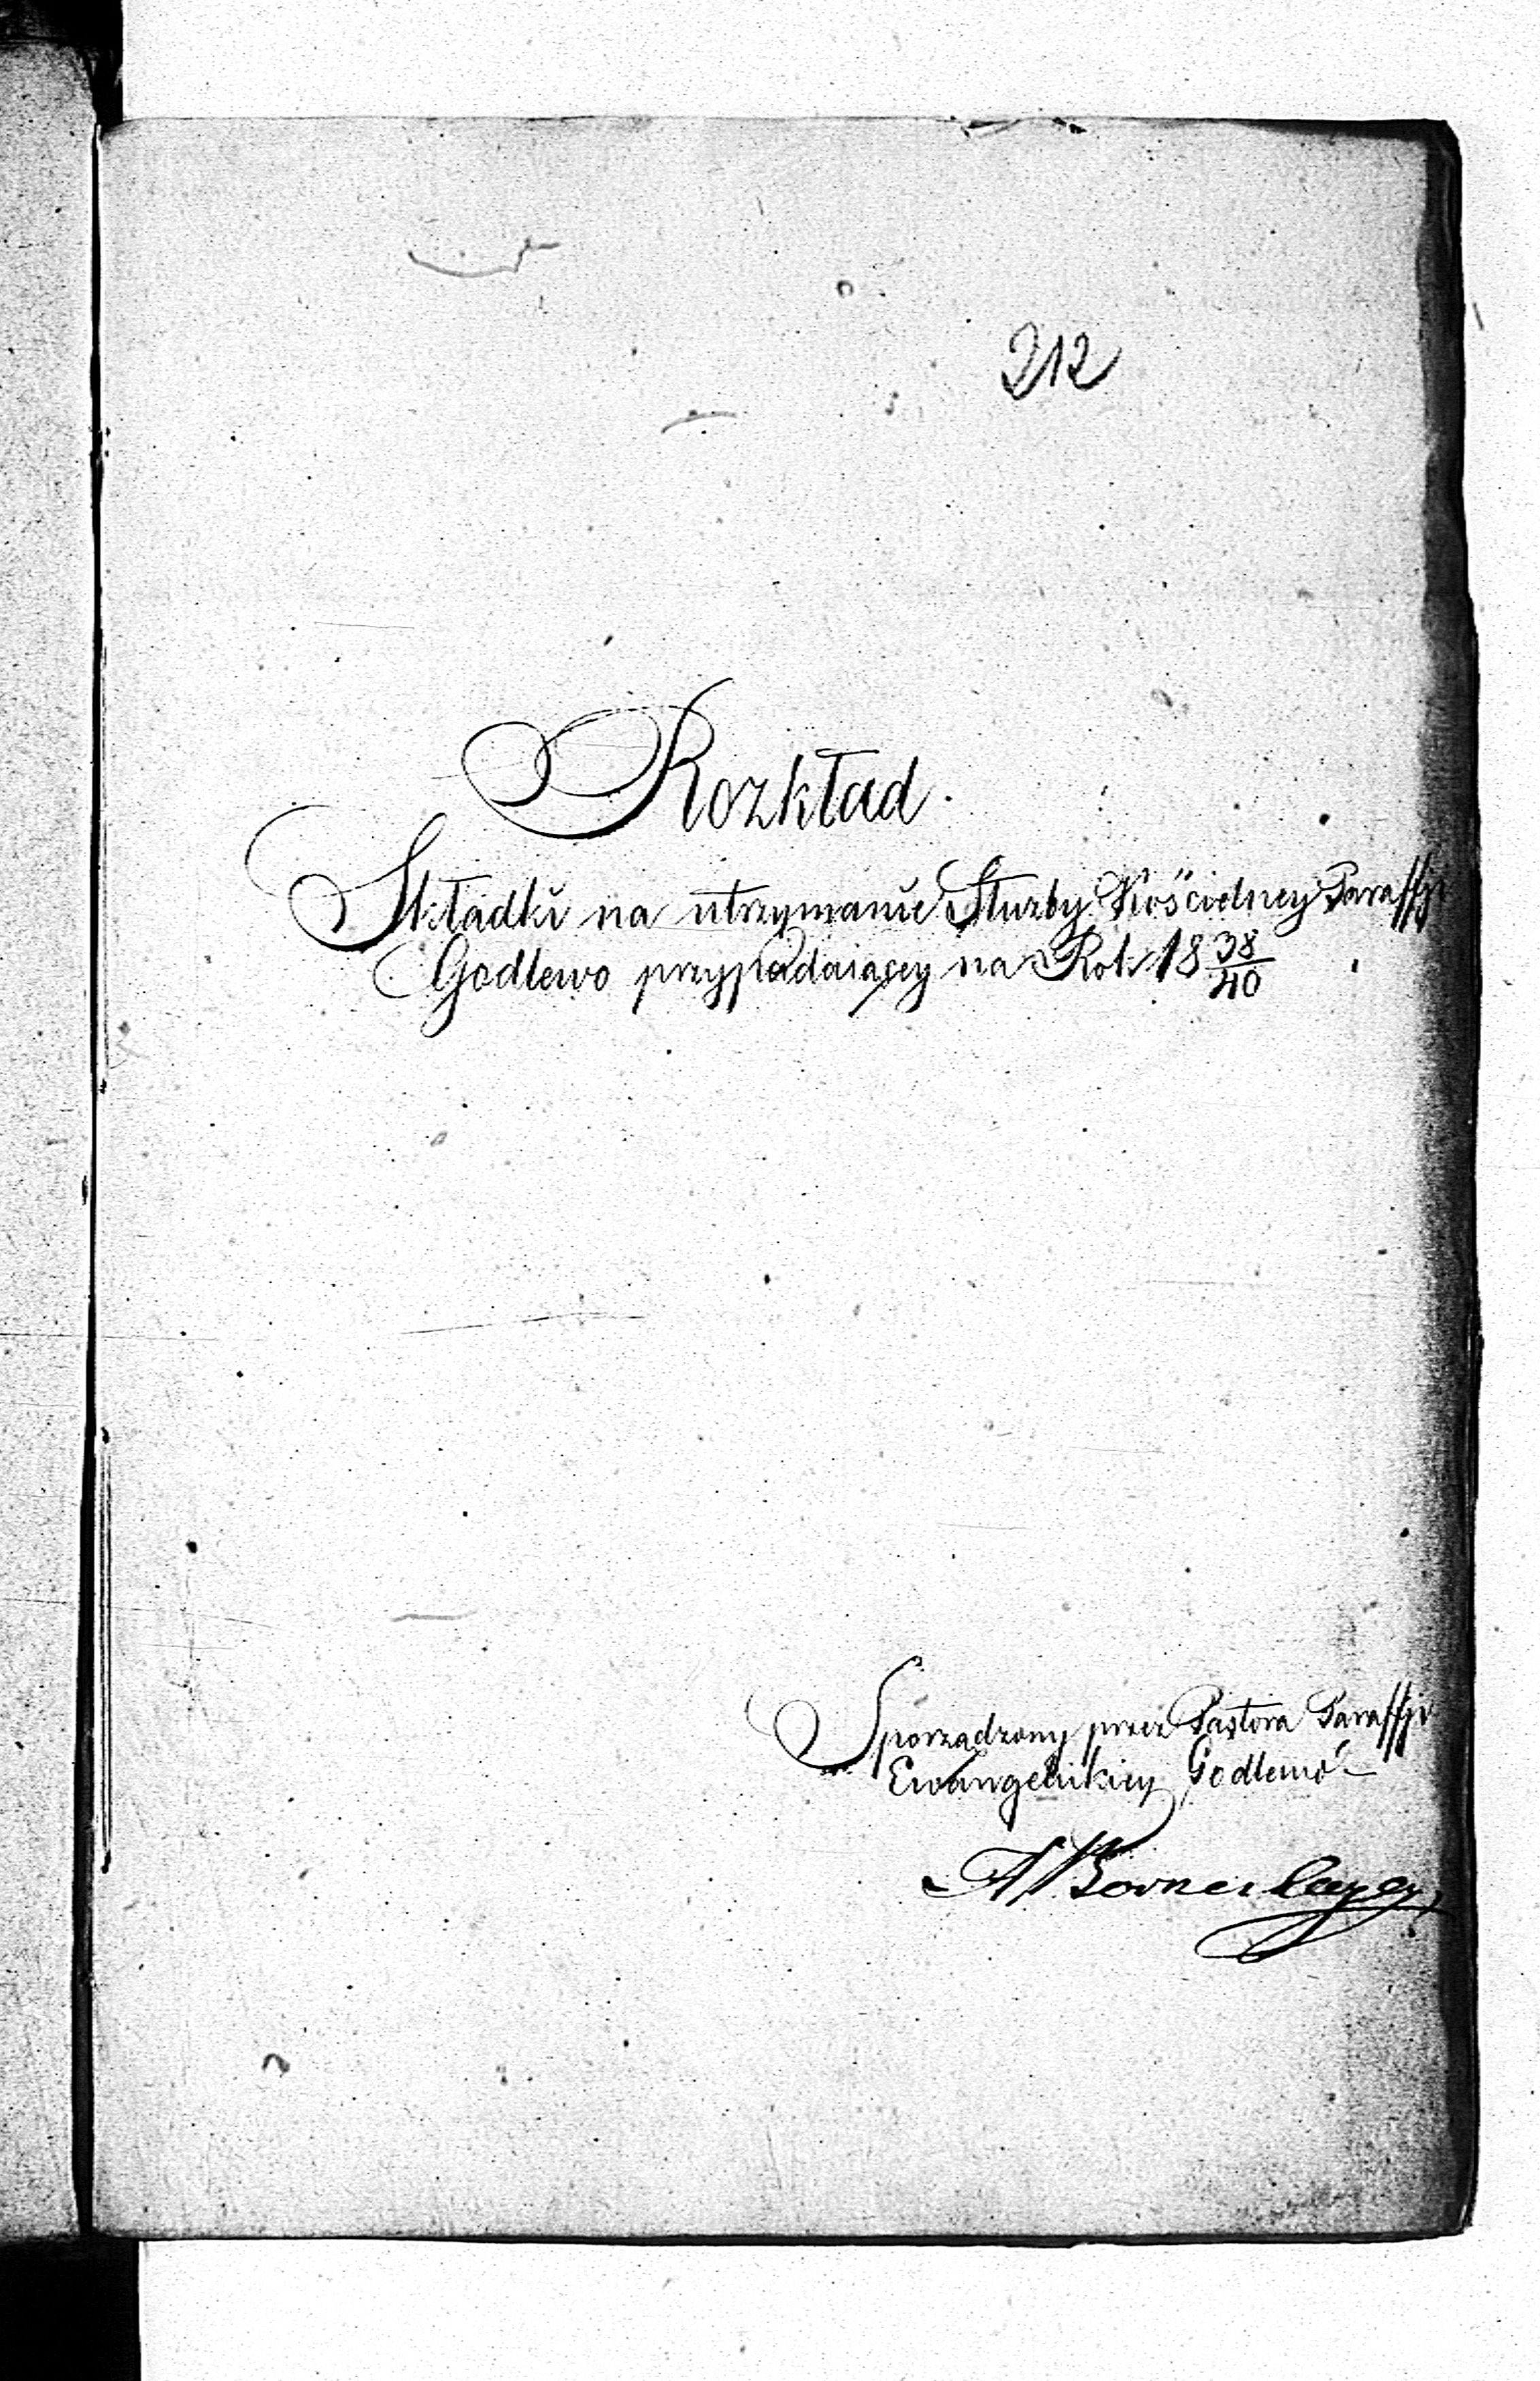 212
Rozkład.
Składki na utrzymanie Służby Kościelney Paraffji
Godlewo przypadaiący na Rok 18 38/40
Sporządzony przez Pastora Paraffji
Ewangelickiey Godlewo